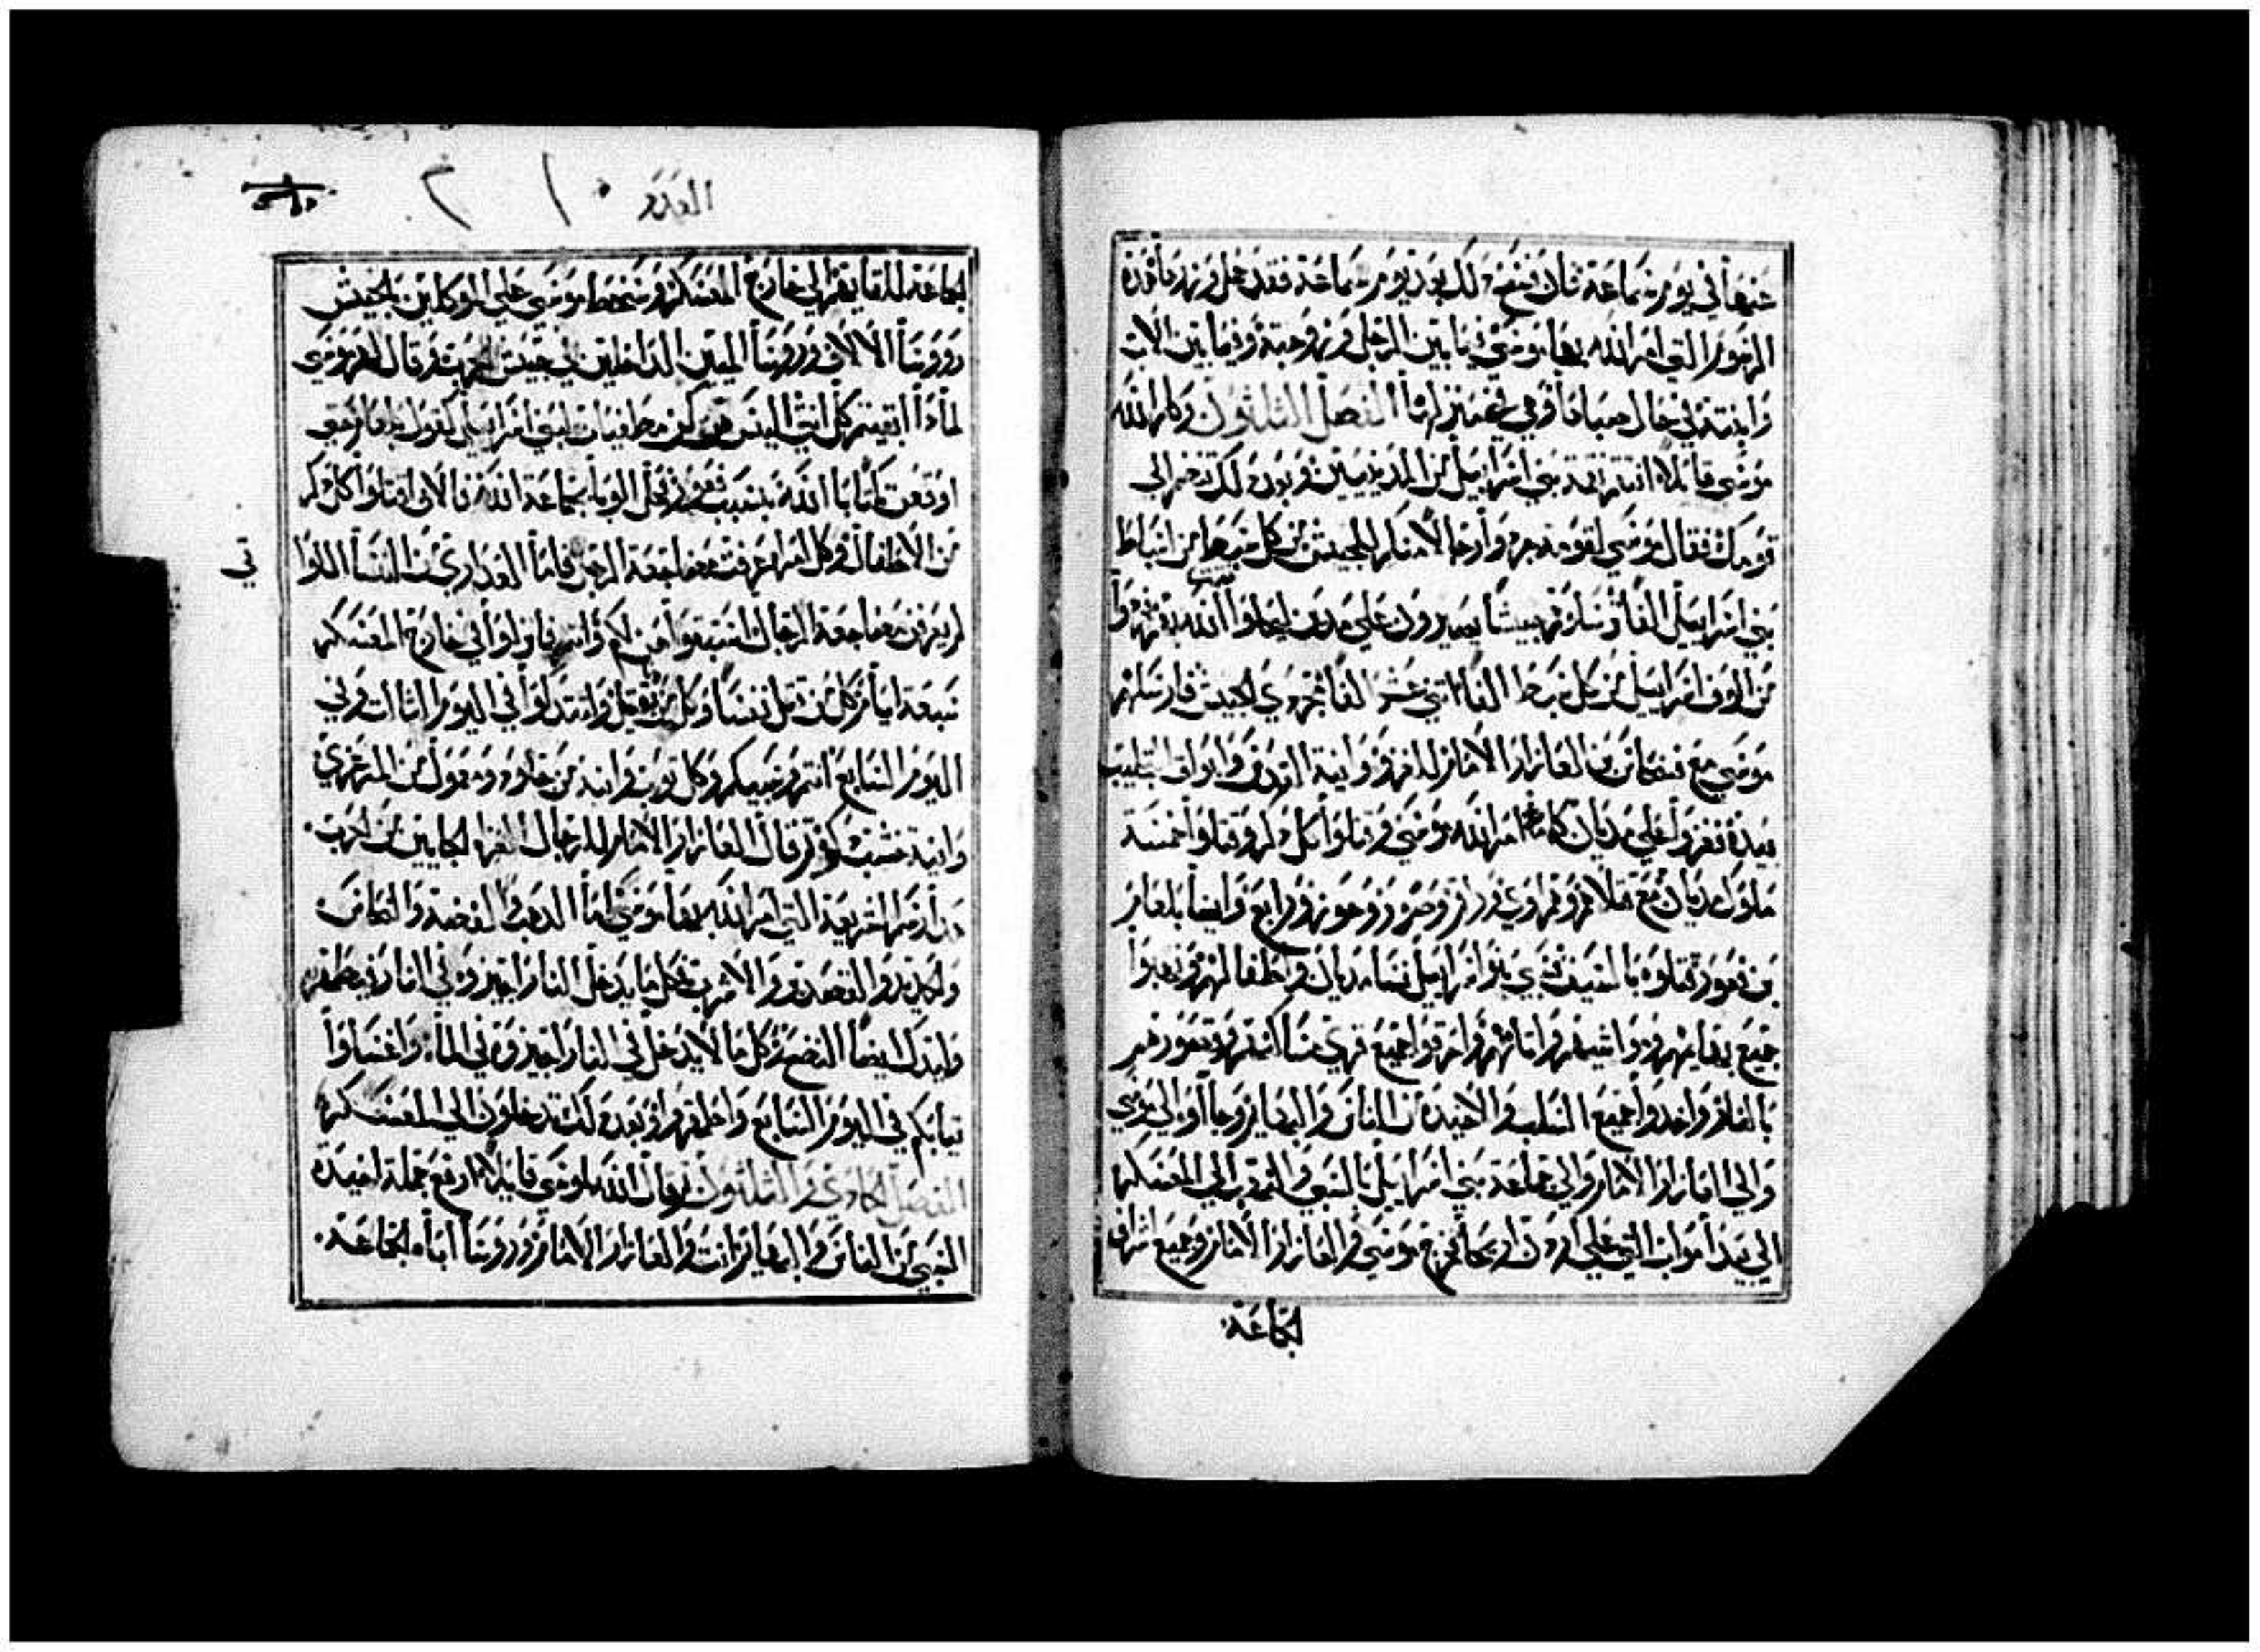 عنها في يوم سماعه فان فسخ ذلك بعد يوم سماعه فقد حمل وزره هذه
الرسوم التي امر الله بها موسى فيما بين الرجل وزوجته وفيما بين الاب
وابنته في حال صباها وهي في بيت ابيها الفصل الثلثون وكلم الله
موسى قايلا انتقم نقمة بني اسراييل من المدينيين وبعد ذلك تنضم الى
قومك فقال موسى لقومه جردوا رجالا منكم للجيش من كل سبط من اسباط
بني اسراييل الفا وسلوهم جيشا يصيرون على مدين ليحلوا الله بهم
من الوف اسراييل من كل سبط الفا اثني عشر الفا مجردي الجيش فارسلهم
موسى مع فنحاس بن العازار الامام للغزو وانية القدس وابواق التجليب
بيده فغزوا على مديان كما امر الله موسى وقتلوا كل ذكر وقتلوا خمسة
ملوك مديان مع قتلاهم وهم اوي ورقم وصور وحور ورابع وايضا بلعام
بن بعور قتلوه بالسيف وسبي بنو اسراييل نساء مديان واطفالهم ونهبوا
جميع بهايمهم ومواشيهم واثاثهم واحرقوا جميع قري مساكنهم وقصورهم
بالنار واخذوا جميع السلب والاخيذه من الناس والبهايم وجاوا الى موسى
والى العازار الامام والى جماعة بني اسراييل بالسبي والنهب الى المعسكر
الى بيدا مواب التي على اردن اريحا فخرج موسى والعازار الامام وجميع اشراف
الجماعة
العدد
الجماعة للقايهم الى خارج المعسكر وسخط موسى على الموكلين بالجيش
روسا الالاف وروسا الميين الداخلين في جيش الحرب وقال لهم موسى
لماذا ابقيتم كل انثى اليس هن كن مطغيات لبني اسراييل كقول بلعام حتى
اوقعن كتابا الله بسبب فعور فحل الوبا بجماعة الله فالان اقتلوا كل ذكر
من الاطفال وكل امراه عرفت مضاجعة الرجل فاما العذاري من النسا اللوا
تي
لم يعرفن مضاجعة الرجال استبقوهن لكم وانتم فانزلوا في خارج المعسكر
سبعة ايام كل من قتل نفسا وكل من دني بقتيل وانتدكوا في اليوم الثالث وفي
اليوم السابع انتم وسبيكم وكل ثوب وانيه من جلود ومعمول من المرعزي
وانية خشب ذكوه ثم قال العازار الامام لرجال الغزاه الجايين من الحرب
هذا رسم الشريعة التي امر الله بها موسى اما الذهب والفضة والنحاس
والحديد والقصدير والاسرب وكل ما يدخل النار اجيزوه في النار فيطهر
وليذك ايضا النضح وكل ما لا يدخل في النار اجيزوه في الماء واغسلوا
ثيابكم في اليوم السابع واطهروا وبعد ذلك تدخلون الى المعسكر
الفصل الحادي والثلثون وقال الله لموسى قايلا ارفع جملة اخيذة
السبي من الناس والبهايم انت والعازار الامام وروسا اباء الجماعة